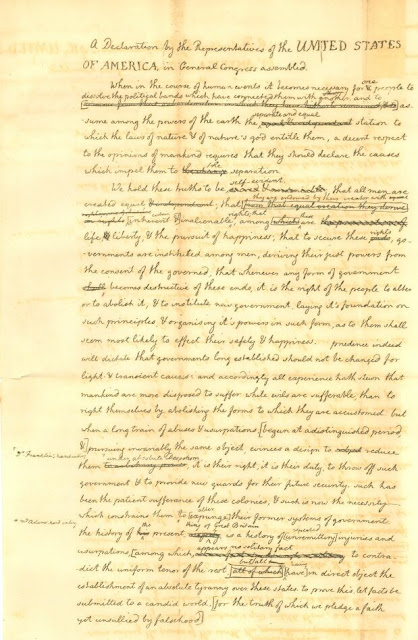 A Declaration by the Representatives of the UNITED STATES
OF AMERICA, in General Congress assembled.
When in the course of human events it becomes necessary for a people to
one
dissolve the political bands which have connected them with another, and to
as-
separate and equal
sume among the powers of the earth the station to
which the laws of nature & of nature's god entitle them, a decent respect
to the opinions of mankind requires that they should declare the causes
which impel them to the separation.
We hold these truths to be self evident; that all men are
created equal & independent; that they are endowed by their creator with
from that equal creation they derive
rights; that these
in rights inherent & inalienable, among which are the preservation of
life, & liberty, & the pursuit of happiness; that to secure these rights, go-
vernments are instituted among men, deriving their just powers from
the consent of the governed; that whenever any form of government
shall becomes destructive of these ends, it is the right of the people to alter
or to abolish it, & to institute new government, laying it's foundation on
such principles & organising it's powers in such form, as to them shall
seem most likely to effect their safety & happiness. prudence indeed
will dictate that governments long established should not be changed for
light & transient causes: and accordingly all experience hath shewn that
mankind are more disposed to suffer while evils are sufferable, than to
right themselves by abolishing the forms to which they are accustomed. but
when a long train of abuses & usurpations [begun at a distinguished period,
& pursuing invariably the same object, evinces a design to reduce
* Dr. Franklin's handwriting
under absolute Despotism
them to arbitrary power, it is their right, it is their duty, to throw off such
government & to provide new guards for their future security. such has
been the patient sufferance of these colonies; & such is now the necessity
* Mr. Adams' hand writing
alter
which constrains them to [expunge] their former systems of government.
the King of Great Britain repeated
the history of his present majesty is a history of [unremitting] injuries and
appears no solitary fact
usurpations, [among which, to contra-
but all
dict the uniform tenor of the rest [all of which] [have] in direct object the
establishment of an absolute tyranny over these states. to prove this let facts be
submitted to a candid world, [for the truth of which we pledge a faith
yet unsullied by falsehood]